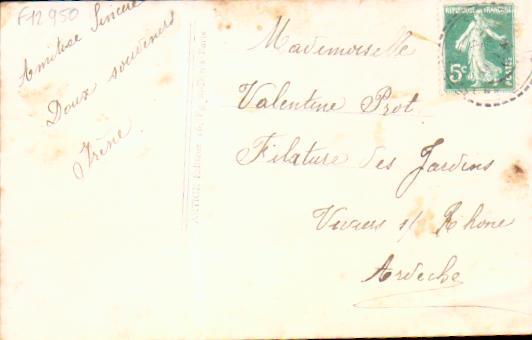 F12950
Amitié Sincère
Doux souvenirs
Irène.
Mademoiselle
Valentine Prot
Filature des Jardins
Viviers s/ Rhône
Ardèche
REPUBLIQUE FRANÇAISE
5c